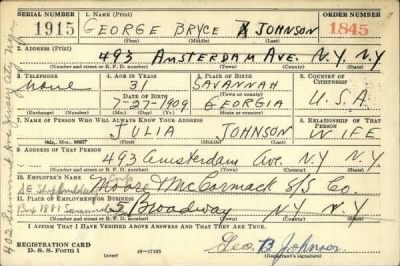 SERIAL NUMBER 1. NAME (Print) ORDER NUMBER
1915 GEORGE BRYCE JOHNSON 1845
(First) (Middle) (Last)
2. ADDRESS (Print)
493 AMSTERDAM AVE. N.Y. N.Y.
(Number and street or R. F. D. number) (Town) (County) (State)
3. TELEPHONE 4. AGE IN YEARS 5. PLACE OF BIRTH 6. COUNTRY OF CITIZENSHIP
None 31 SAVANNAH
DATE OF BIRTH (Town or county)
7-27-1909 GEORGIA U.S.A.
(Exchange) (Number) (Mo.) (Day) (Yr.) (State or country)
7. NAME OF PERSON WHO WILL ALWAYS KNOW YOUR ADDRESS 8. RELATIONSHIP OF THAT PERSON
JULIA JOHNSON WIFE
(Mr., Mrs., Miss) (First) (Middle) (Last)
9. ADDRESS OF THAT PERSON
493 Amsterdam Ave. N.Y N.Y.
(Number and street or R. F. D. number) (Town) (County) (State)
10. EMPLOYER'S NAME
Moore McCormack S/S Co.
11. PLACE OF EMPLOYMENT OR BUSINESS
Box 1881 Savannah
5 Broadway N.Y N.Y.
(Number and street or R. F. D. number) (Town) (County) (State)
I AFFIRM THAT I HAVE VERIFIED ABOVE ANSWERS AND THAT THEY ARE TRUE.
REGISTRATION CARD
D. S. S. Form 1 (over) Geo. B Johnson
(Registrant's signature)